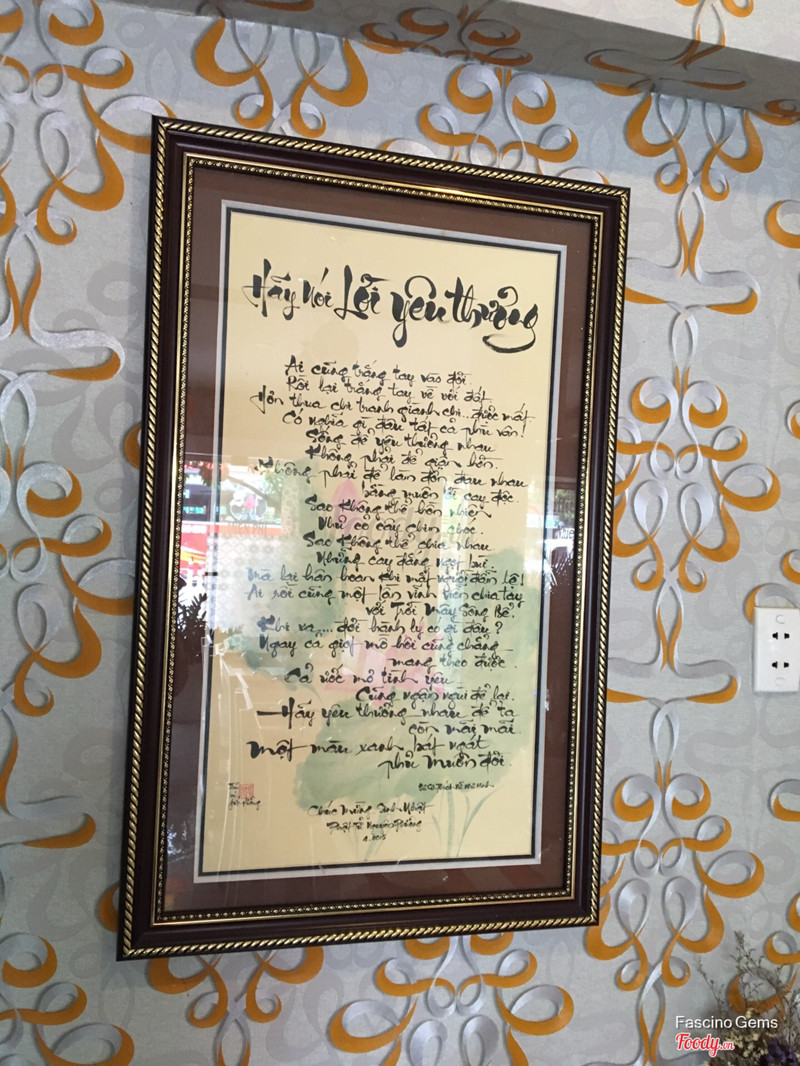 Hãy Nói Lời yêu thương
Ai cũng trắng tay vào đời
Rồi lại trắng tay về với đất
Hơn thua chi tranh giành chi... được mất
Có nghĩa gì đâu tất cả phù vân!
Sống để yêu thương nhau
Không phải để giận hờn.
Không phải để làm đớn đau nhau
bằng muôn lời cay độc
Sao không thể hồn nhiên
Như cỏ cây chim chóc.
Sao không thể chia nhau
Những cay đắng ngọt bùi.
Mà lại hân hoan khi mất người đần lộ!
Ai rồi cũng một lần vĩnh viễn chia tay
với Trời Mây Sông Bể.
Khi xa.... đời hành lý có gì đây?
Ngay cả giọt mồ hôi cũng chẳng
mang theo được.
Cả ước mơ tình yêu
Cũng ngậm ngùi để lại.
Hãy yêu thương nhau để ta
còn mãi mãi.
một màu xanh bát ngát
phủ muôn đời.
Chúc Mừng Sinh Nhật
Phật Tử Nguyên
4.2015
Fascino Gems
Foody.vn